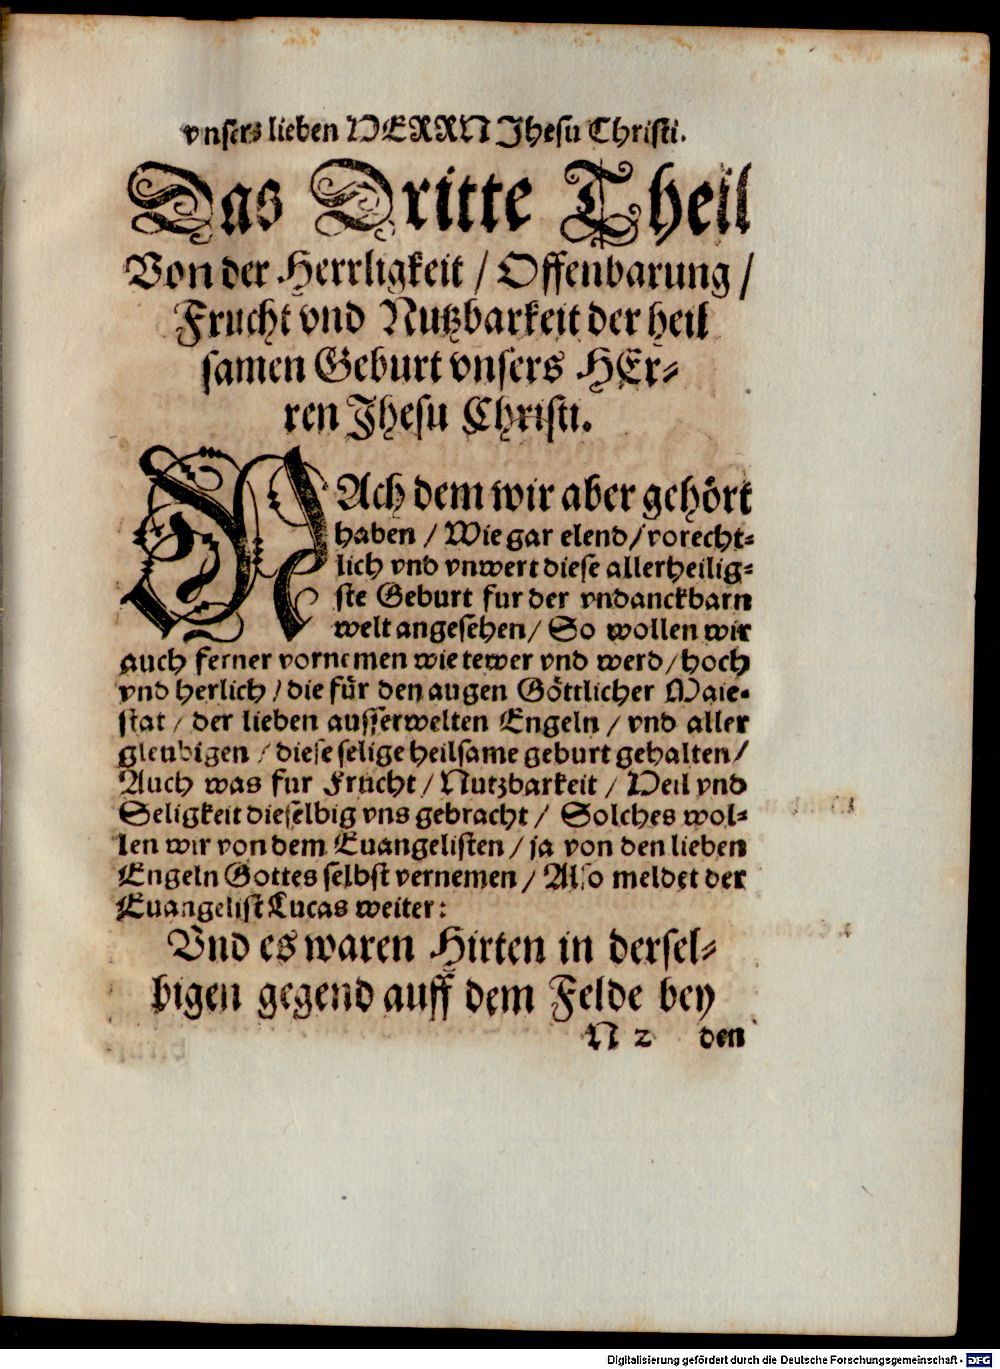 vnsers lieben HERRN Jhesu Christi.
Das Dritte Theil
Von der Herrligkeit / Offenbarung /
Frucht vnd Nutzbarkeit der heil
samen Geburt vnsers HEr-
ren Jhesu Christi.
NAch dem wir aber gehört
haben / Wie gar elend / vorecht-
lich vnd vnwert diese allerheilig-
ste Geburt fur der vndanckbarn
welt angesehen / So wollen wir
auch ferner vornemen wie tewer vnd werd / hoch
vnd herlich / die für den augen Göttlicher Maie-
stat / der lieben ausserwelten Engeln / vnd aller
gleubigen / diese selige heilsame geburt gehalten /
Auch was fur Frucht / Nutzbarkeit / Heil vnd
Seligkeit dieselbig vns gebracht / Solches wol-
len wir von dem Euangelisten / ja von den lieben
Engeln Gottes selbst vernemen / Also meldet der
Euangelist Lucas weiter:
Vnd es waren Hirten in dersel-
bigen gegend auff dem Felde bey
N 2 den
Digitalisierung gefördert durch die Deutsche Forschungsgemeinschaft - DFG